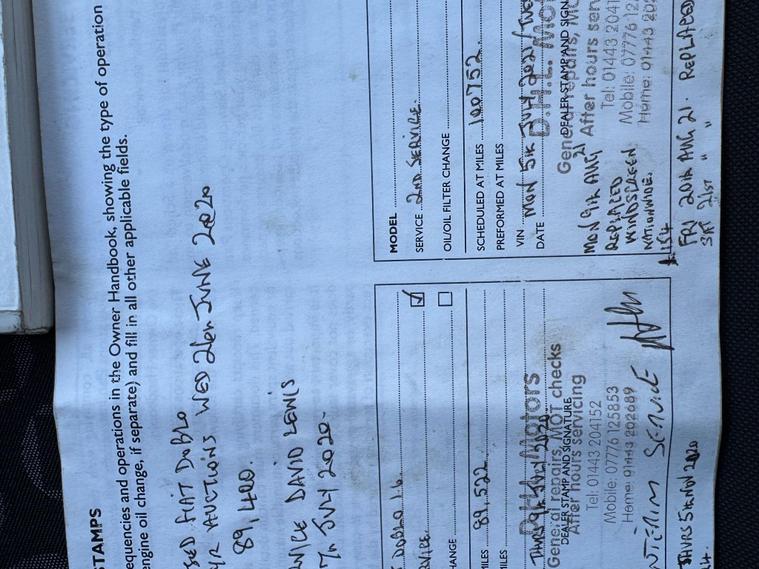 STAMPS
equencies and operations in the Owner Handbook, showing the type of operation
engine oil change, if separate) and fill in all other applicable fields.
SED FIAT DOBLO
AUCTIONS WED 24TH JUNE 2020
89,400.
DAVID LEWIS
JULY 2020.
DOBLO 1.6.
HANGE
MILES 89,522
MILES
THURS 9TH JULY 2020.
Motors
General repairs, MOT checks
DEALER STAMP AND SIGNATURE
After hours servicing
Tel: 01443 204152
Mobile: 07776 125853
Home: 01443 202689
INTERIM SERVICE
THURS 5TH NOV 2020
MODEL
SERVICE 2ND SERVICE.
OIL/OIL FILTER CHANGE
SCHEDULED AT MILES 100752
PREFORMED AT MILES
VIN MON 5TH JULY 2021/TUES
DATE D.H.L. Mot
DEALER STAMP AND SIGN
General repairs, MO
After hours serv
Tel: 01443 2041
Mobile: 07776 12
Home: 01443 202
MON 9TH AUG 21
REPLACED
WINDSCREEN
NATIONWIDE.
£154
FRI 20TH AUG 21. REPLACED
21ST " "